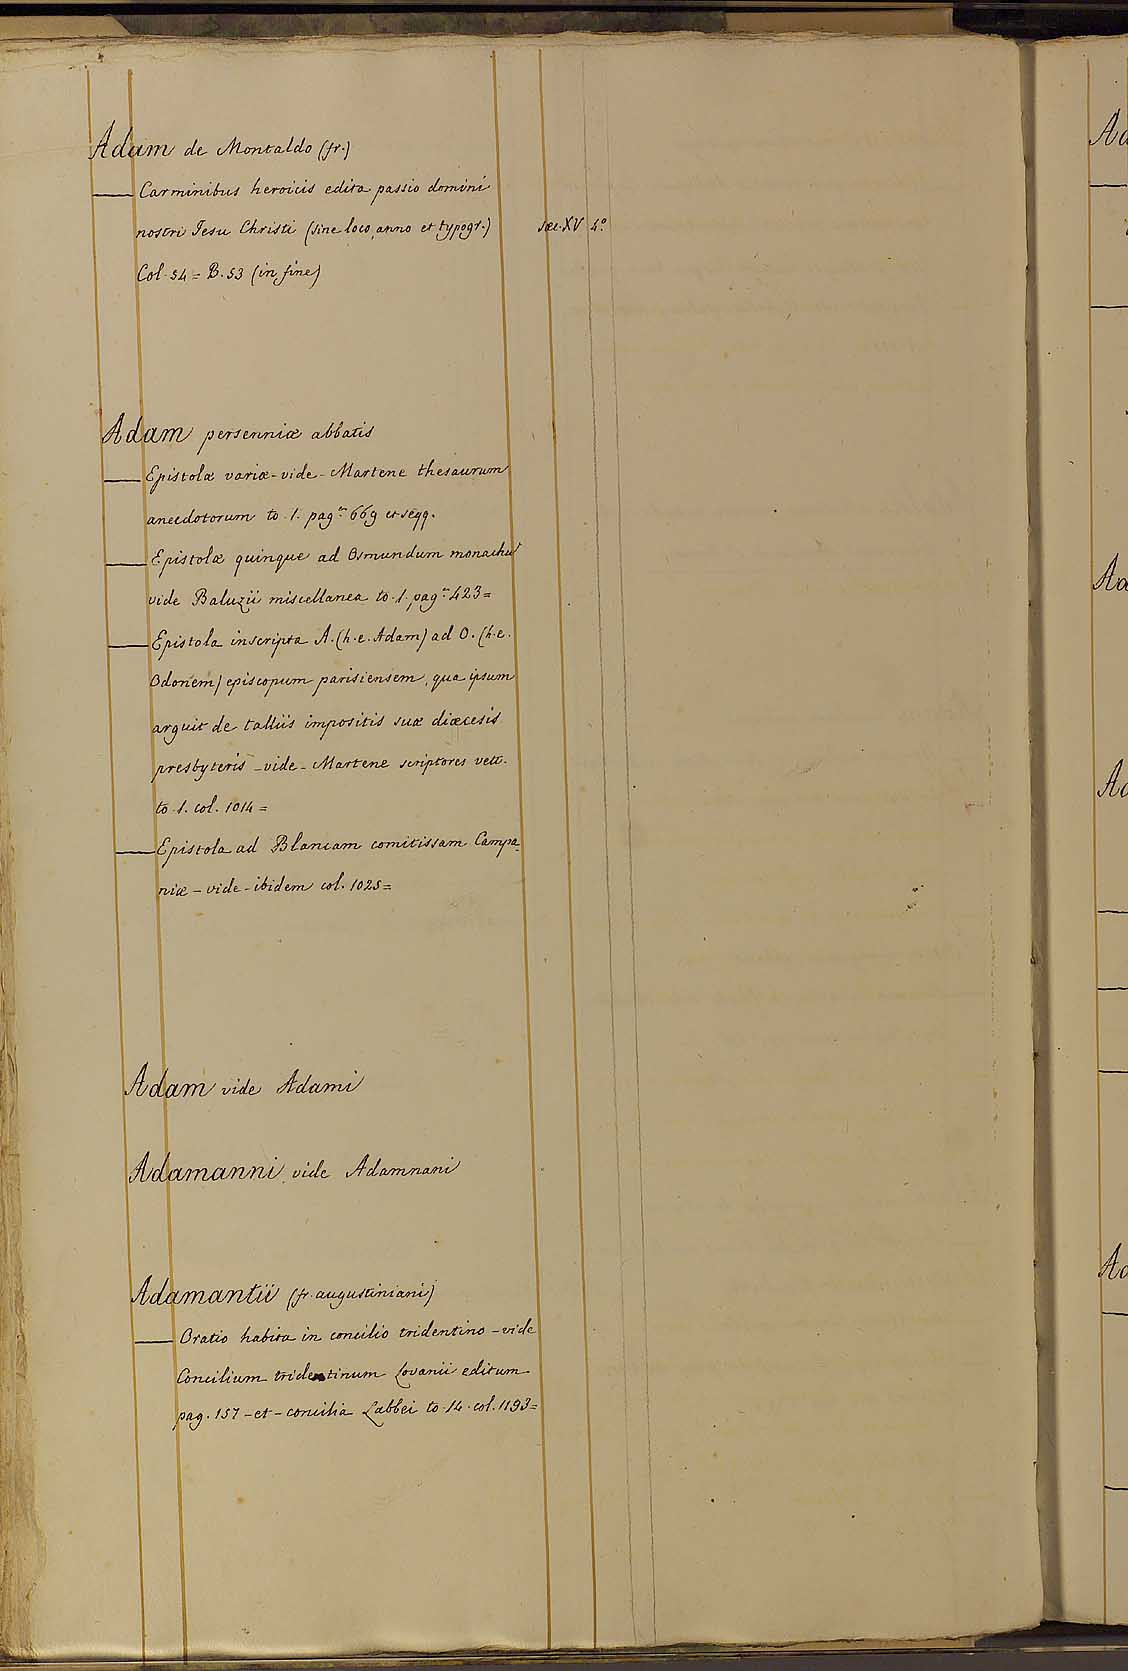 Adam de Montaldo (fr.)
— Carminibus heroicis edita passio domini
nostri Jesu Christi (sine loco, anno et typogr.) sæc. XV 4.º
Col. 54 = B. 53 (in fine)
Adam persenniæ abbatis
— Epistolæ variæ - vide - Martene thesaurum
anecdotorum to. 1. pag.ᵃ 669 et seqq.
— Epistolæ quinque ad Osmundum monachu
vide Baluzii miscellanea to. 1. pag.ᵃ 423 =
— Epistola inscripta A. (h. e. Adam) ad O. (h. e.
Odonem) episcopum parisiensem, qua ipsum
arguit de talliis impositis suæ diæcesis
presbyteris - vide - Martene scriptores vett.
to. 1. col. 1014 =
— Epistola ad Blancam comitissam Campa-
niæ - vide - ibidem col. 1025 =
Adam vide Adami
Adamanni vide Adamnani
Adamantii (fr. augustiniani)
— Oratio habita in concilio tridentino - vide
Concilium tridentinum Lovanii editum
pag. 157 - et - concilia Labbei to. 14. col. 1193 =